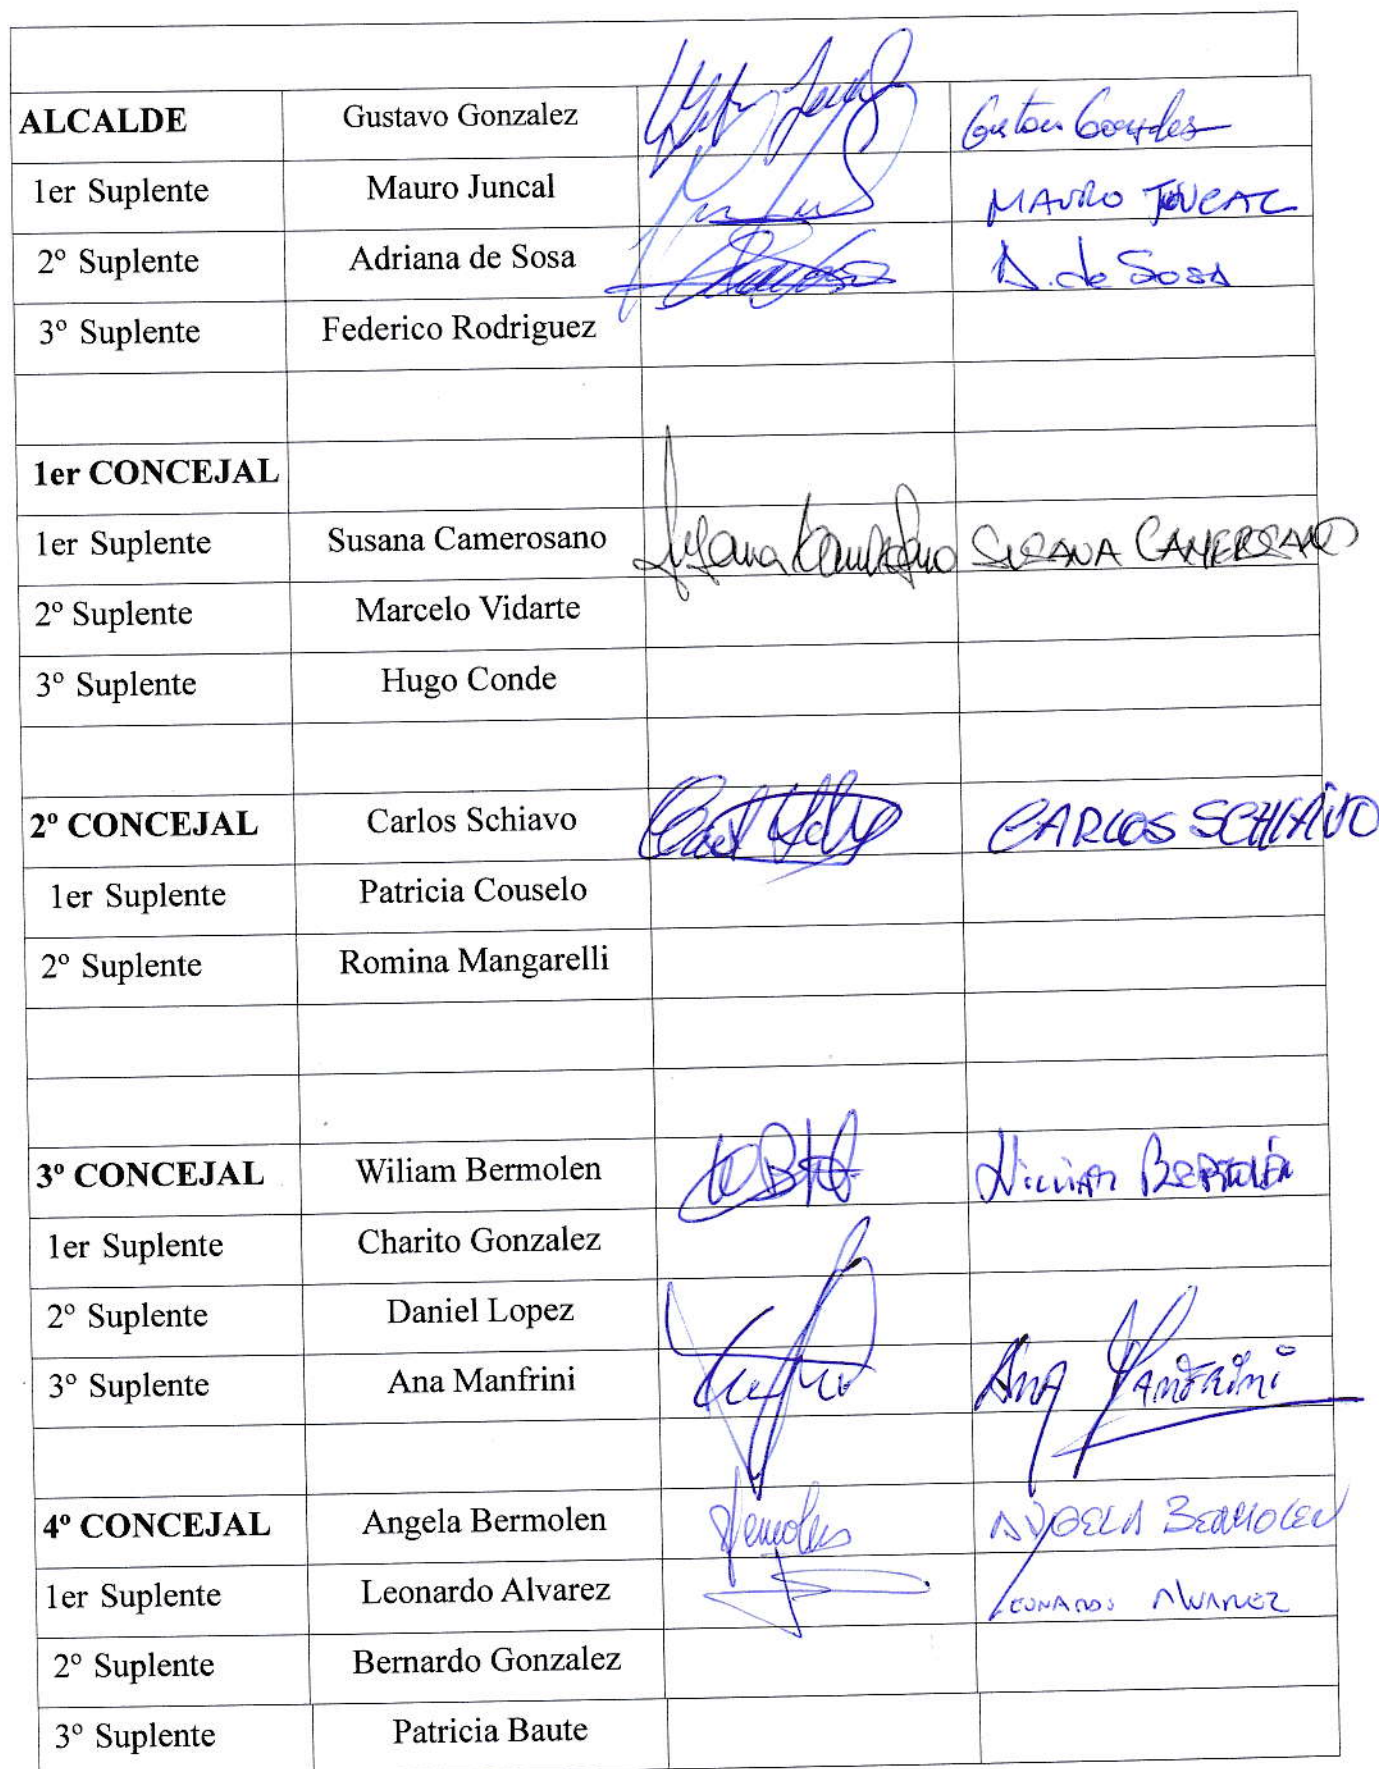 ALCALDE Gustavo Gonzalez
1er Suplente Mauro Juncal MAURO JUNCAL
2º Suplente Adriana de Sosa A. de Sosa
3º Suplente Federico Rodriguez
1er CONCEJAL
1er Suplente Susana Camerosano Susana Camerosano SUSANA CAMEROSANO
2º Suplente Marcelo Vidarte
3º Suplente Hugo Conde
2º CONCEJAL Carlos Schiavo CARLOS SCHIAVO
1er Suplente Patricia Couselo
2º Suplente Romina Mangarelli
3º CONCEJAL Wiliam Bermolen
1er Suplente Charito Gonzalez
2º Suplente Daniel Lopez
3º Suplente Ana Manfrini Ana Manfrini
4º CONCEJAL Angela Bermolen ANGELA BERMOLEN
1er Suplente Leonardo Alvarez LEONARDO ALVAREZ
2º Suplente Bernardo Gonzalez
3º Suplente Patricia Baute